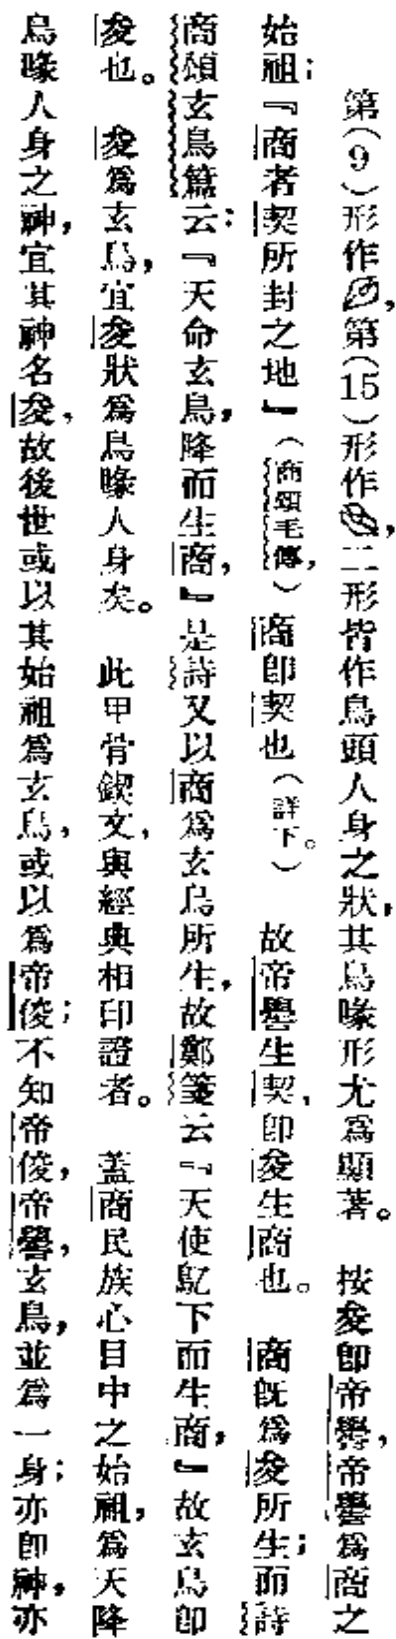 第(9)形作,第(15)形作,二形皆作鳥頭人身之狀,其鳥喙形尤爲顯著。按夋卽帝嚳,帝嚳爲商之
始祖;『商者契所封之地』(商頌毛傳,)商卽契也(詳下。)故帝嚳生契,卽夋生商也。商旣爲夋所生;而詩
商頌玄鳥篇云:『天命玄鳥,降而生商,』是詩又以商爲玄鳥所生,故鄭箋云『天使鳦下而生商,』故玄鳥卽
夋也。夋爲玄鳥,宜夋狀爲鳥喙人身矣。此甲骨鍥文,與經典相印證者。蓋商民族心目中之始祖,爲天降
鳥喙人身之神,宜其神名夋,故後世或以其始祖爲玄鳥,或以爲帝俊;不知帝俊,帝嚳,玄鳥,並爲一身;亦卽神,亦